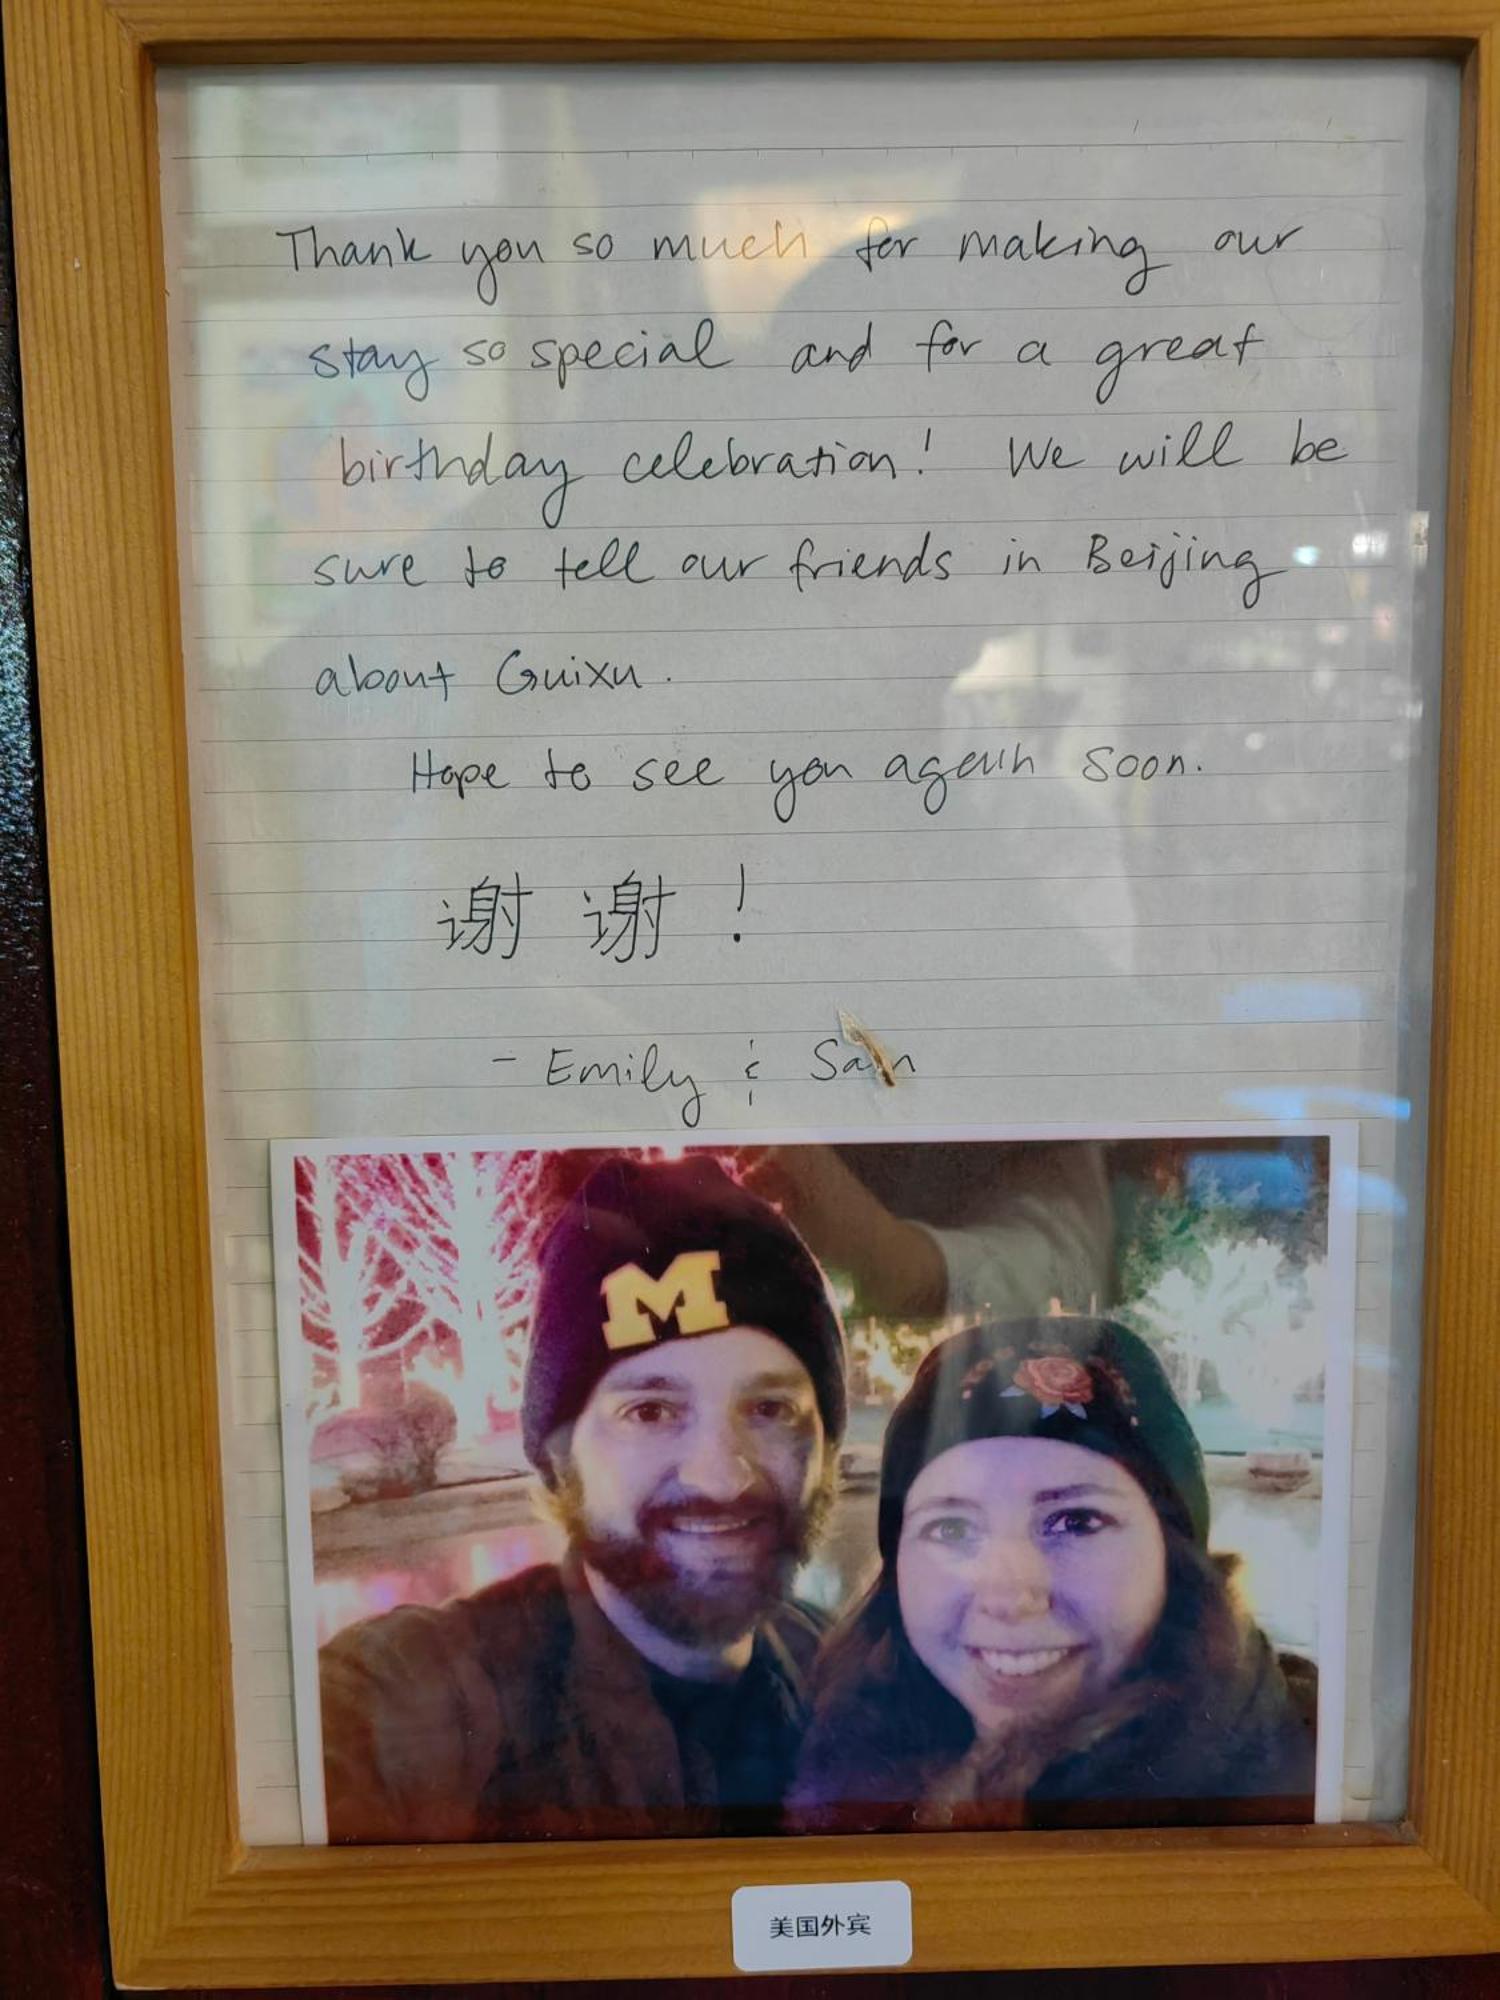 Thank you so much for making our
stay so special and for a great
birthday celebration! We will be
sure to tell our friends in Beijing
about Guixu.
Hope to see you again soon.
谢谢!
- Emily & Sam
M
美国外宾